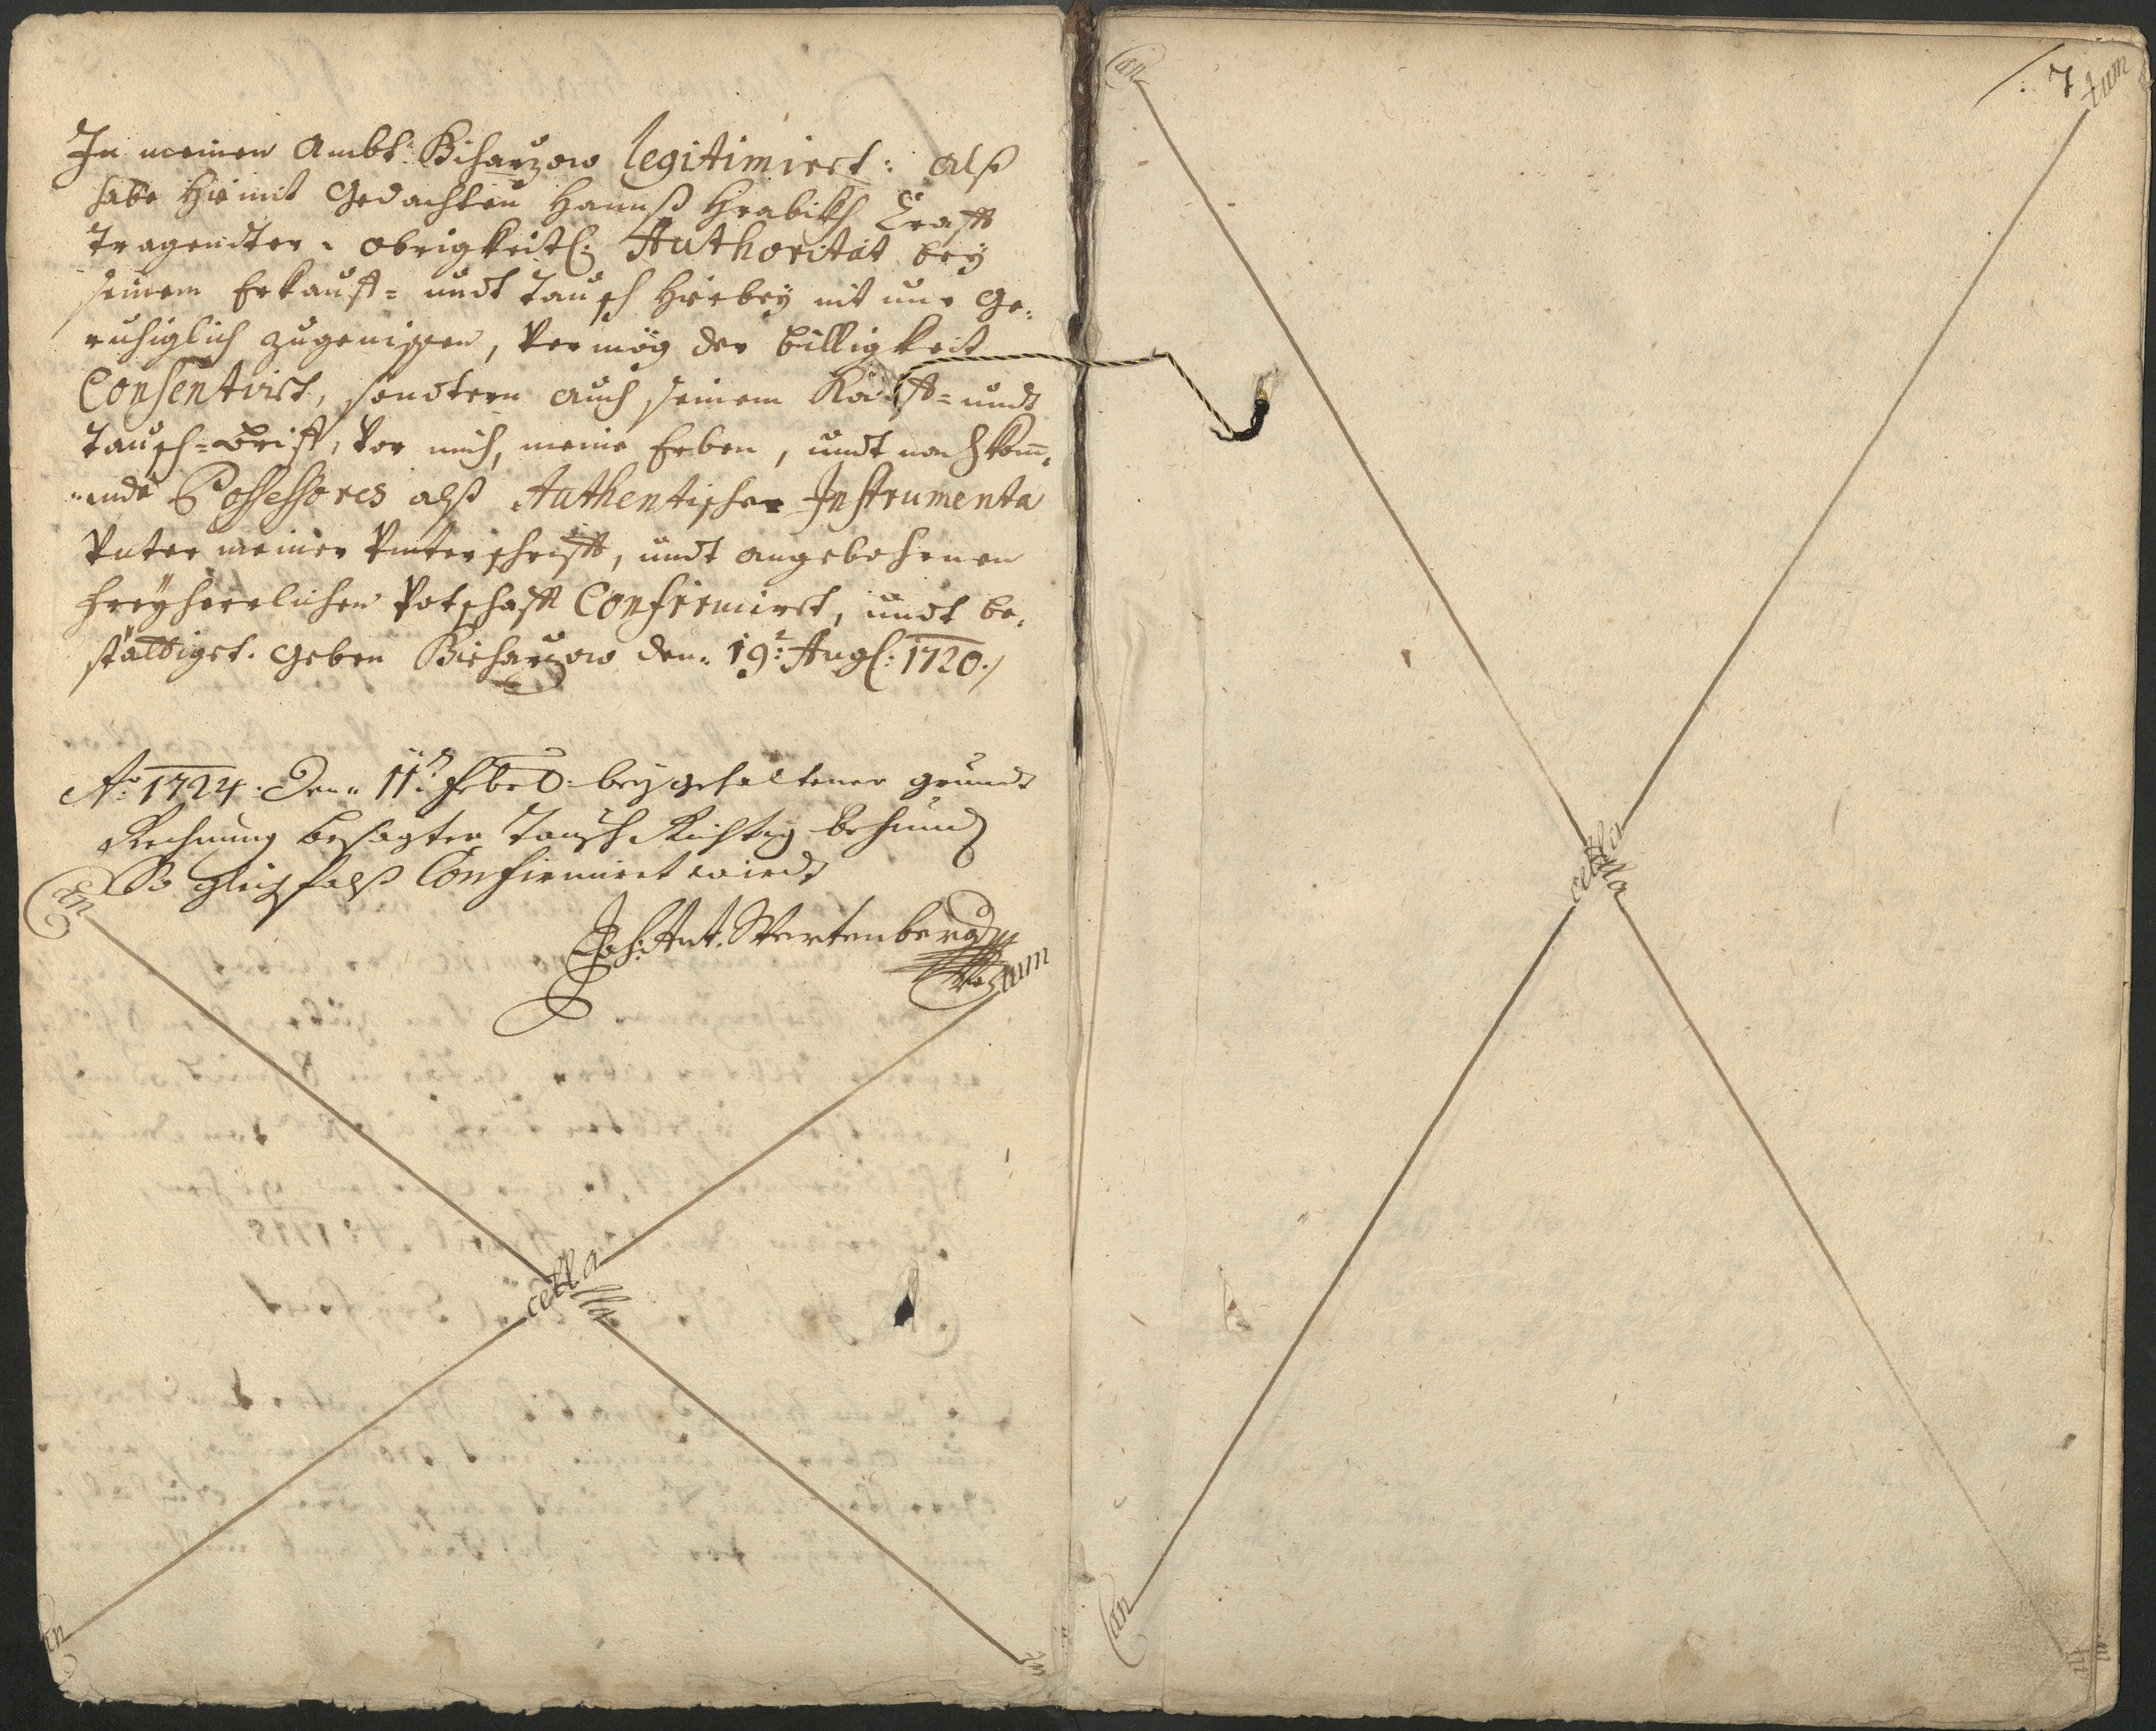 In meinen Ambt: Bisharzow legitimiert: alß
habe Hiemit Gedachten Hannß Hrabikh Crafft
tragendter obrigkeitl: Authoritat bey
seinem Erkauff= undt Tausch Hierbey nit nur Ge:
ruhiglich zugenissen, Vermög der billigkeit
Consentirt, sondtern auch seinem Kauff= undt
Tausch=Brieff, Vor mich, meine Erben, undt nachkom̅:
ende Possessores alß Authentischen Instrumenta
Unter meiner Unterschrifft, undt angebohrnen
freyherrlichen Petschafft Confirmirt, undt be:
stättiget. Geben Bisharzow den 19: Augl: 1720./
Ao: 1724. Den 11: Febr: bey gehaltener grundt
Rechnung besagter Tausch Richtig befund
So gleichfalß Confirmiret wirdt
Joh: Ant. Wertenberg
Can cella tum
Can cella tum
7
Can cella tum
Can cella tum